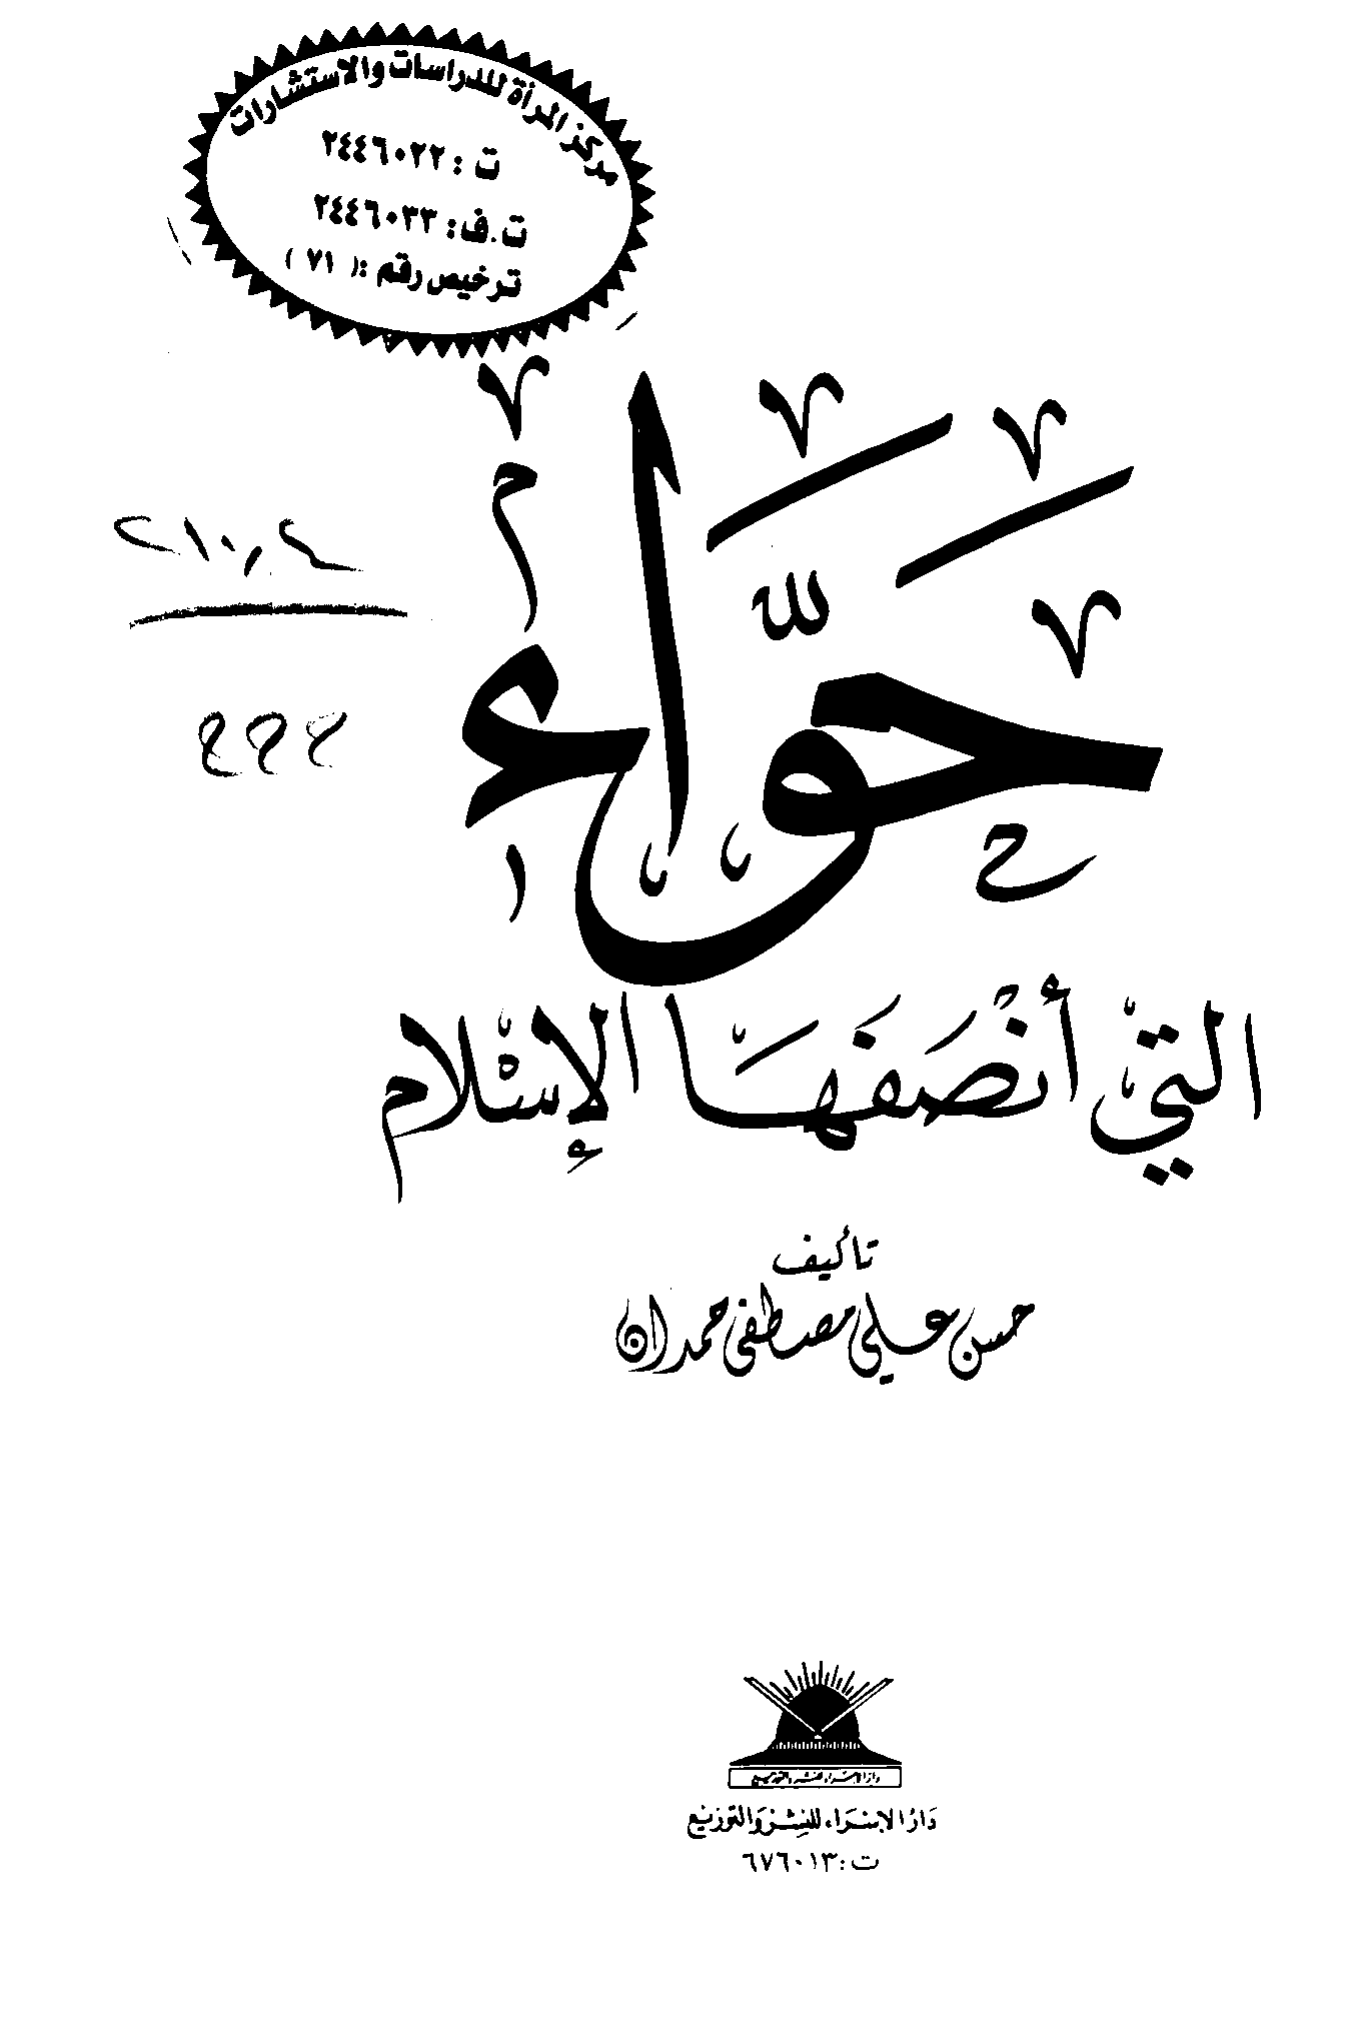 مركز المرأة للدراسات والاستشارات
ت : ٢٤٤٦٠٢٢
ت.ف: ٢٤٤٦٠٣٣
ترخيص رقم :( ٧١ )
حوَّاء
التيِ أنْصَفَهَا الإسْلام
تأليف
حسن علي مصطفى حمدان
دار الإسراء للنشر والتوزيع
دَارُ الإسْرَاء للنِشْرِ وَالتوزيْع
ت : ٦٧٦٠١٣